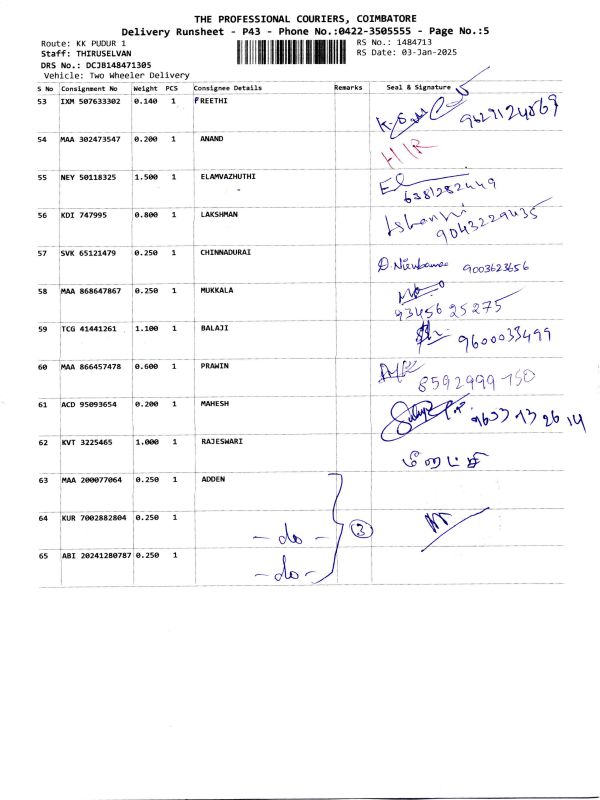 THE PROFESSIONAL COURIERS, COIMBATORE
Delivery Runsheet - P43 - Phone No.:0422-3505555 - Page No.:5
Route: KK PUDUR 1 RS No.: 1484713
Staff: THIRUSELVAN RS Date: 03-Jan-2025
DRS No.: DCJB148471305
Vehicle: Two Wheeler Delivery
S No Consignment No Weight PCS Consignee Details Remarks Seal & Signature
53 IXM 507633302 0.140 1 PREETHI
54 MAA 302473547 0.200 1 ANAND
H/R
55 NEY 50118325 1.500 1 ELAMVAZHUTHI
6381282449
56 KDI 747995 0.800 1 LAKSHMAN
9043229435
57 SVK 65121479 0.250 1 CHINNADURAI
9003623656
58 MAA 868647867 0.250 1 MUKKALA
93456 25275
59 TCG 41441261 1.100 1 BALAJI
9600033499
60 MAA 866457478 0.600 1 PRAWIN
8592999750
61 ACD 95093654 0.200 1 MAHESH
9633 13 26 14
62 KVT 3225465 1.000 1 RAJESWARI
மீனாட்சி
63 MAA 200077064 0.250 1 ADDEN
64 KUR 7002882804 0.250 1 - do - 3
65 ABI 20241280787 0.250 1 - do -